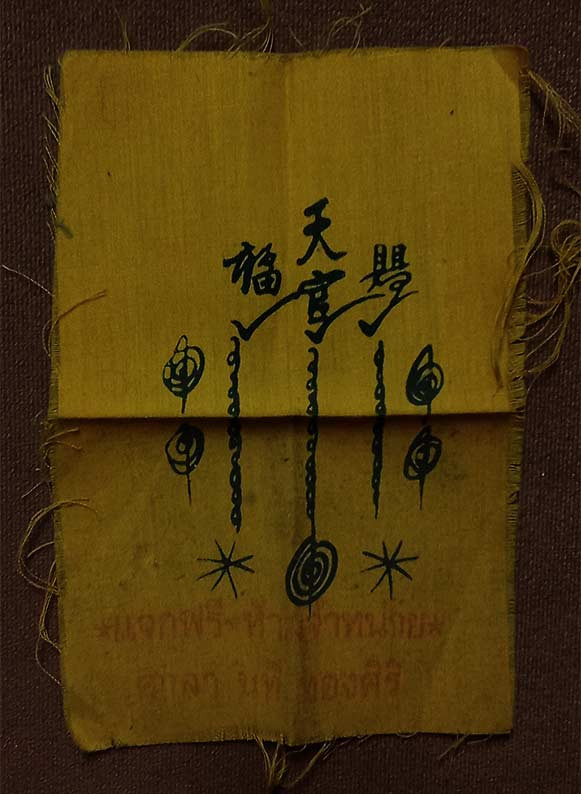 天官
賜
福
*แจกฟรี*ห้ามจำหน่าย*
ศาลา นที ทองศิริ